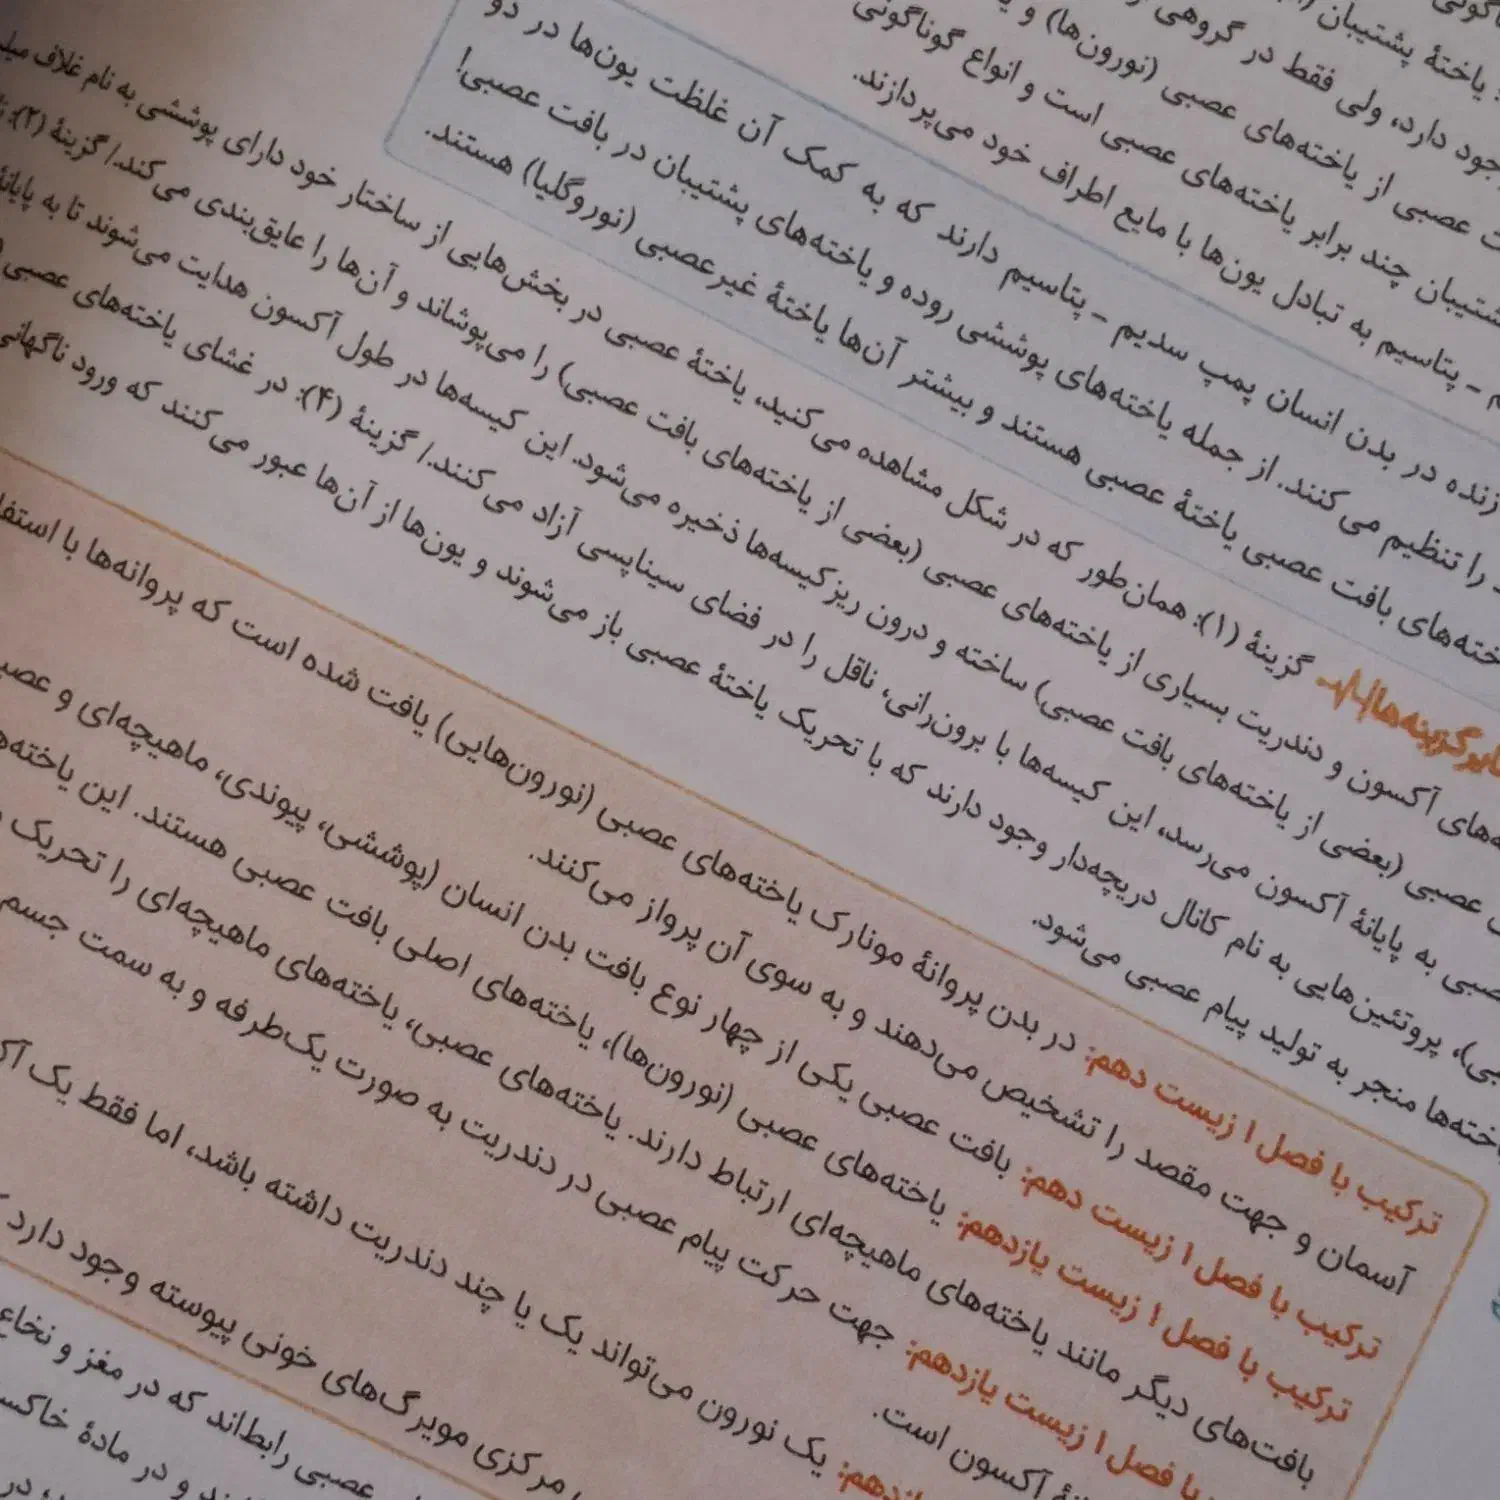 یاختهٔ پشتیبان
وجود دارد، ولی فقط در گروهی
عصبی از یاخته‌های عصبی (نورون‌ها) و
پشتیبان چند برابر یاخته‌های عصبی است و انواع گوناگونی
- پتاسیم به تبادل یون‌ها با مایع اطراف خود می‌پردازند.
زنده در بدن انسان پمپ سدیم - پتاسیم دارند که به کمک آن غلظت یون‌ها در دو
را تنظیم می‌کنند. از جمله یاخته‌های پوششی روده و یاخته‌های پشتیبان در بافت عصبی!
یاخته‌های بافت عصبی یاختهٔ عصبی هستند و بیشتر آن‌ها یاختهٔ غیرعصبی (نوروگلیا) هستند.
سایر گزینه‌ها گزینهٔ (۱): همان‌طور که در شکل مشاهده می‌کنید، یاختهٔ عصبی در بخش‌هایی از ساختار خود دارای پوششی به نام غلاف
آکسون و دندریت بسیاری از یاخته‌های عصبی (بعضی از یاخته‌های بافت عصبی) را می‌پوشاند و آن‌ها را عایق‌بندی می‌کند./ گزینهٔ (۲):
عصبی (بعضی از یاخته‌های بافت عصبی) ساخته و درون ریزکیسه‌ها ذخیره می‌شود. این کیسه‌ها در طول آکسون هدایت می‌شوند تا به پایانهٔ
عصبی به پایانهٔ آکسون می‌رسد، این کیسه‌ها با برون‌رانی، ناقل را در فضای سیناپسی آزاد می‌کنند./ گزینهٔ (۴): در غشای یاخته‌های عصبی
پروتئین‌هایی به نام کانال دریچه‌دار وجود دارند که با تحریک یاختهٔ عصبی باز می‌شوند و یون‌ها از آن‌ها عبور می‌کنند که ورود ناگهانی
یاخته‌ها منجر به تولید پیام عصبی می‌شود.
ترکیب با فصل ۱ زیست دهم: در بدن پروانهٔ مونارک یاخته‌های عصبی (نورون‌هایی) یافت شده است که پروانه‌ها با
آسمان و جهت مقصد را تشخیص می‌دهند و به سوی آن پرواز می‌کنند.
ترکیب با فصل ۱ زیست دهم: بافت عصبی یکی از چهار نوع بافت بدن انسان (پوششی، پیوندی، ماهیچه‌ای و
ترکیب با فصل ۱ زیست یازدهم: یاخته‌های عصبی (نورون‌ها)، یاخته‌های اصلی بافت عصبی هستند. این
بافت‌های دیگر مانند یاخته‌های ماهیچه‌ای ارتباط دارند. یاخته‌های عصبی، یاخته‌های ماهیچه‌ای را تحریک
با فصل ۱ زیست یازدهم: جهت حرکت پیام عصبی در دندریت به صورت یک‌طرفه و به سمت جسم
آکسون است.
یک نورون می‌تواند یک یا چند دندریت داشته باشد، اما فقط یک
مرکزی مویرگ‌های خونی پیوسته وجود دارد
عصبی رابط‌اند که در مغز و نخاع
و در مادهٔ